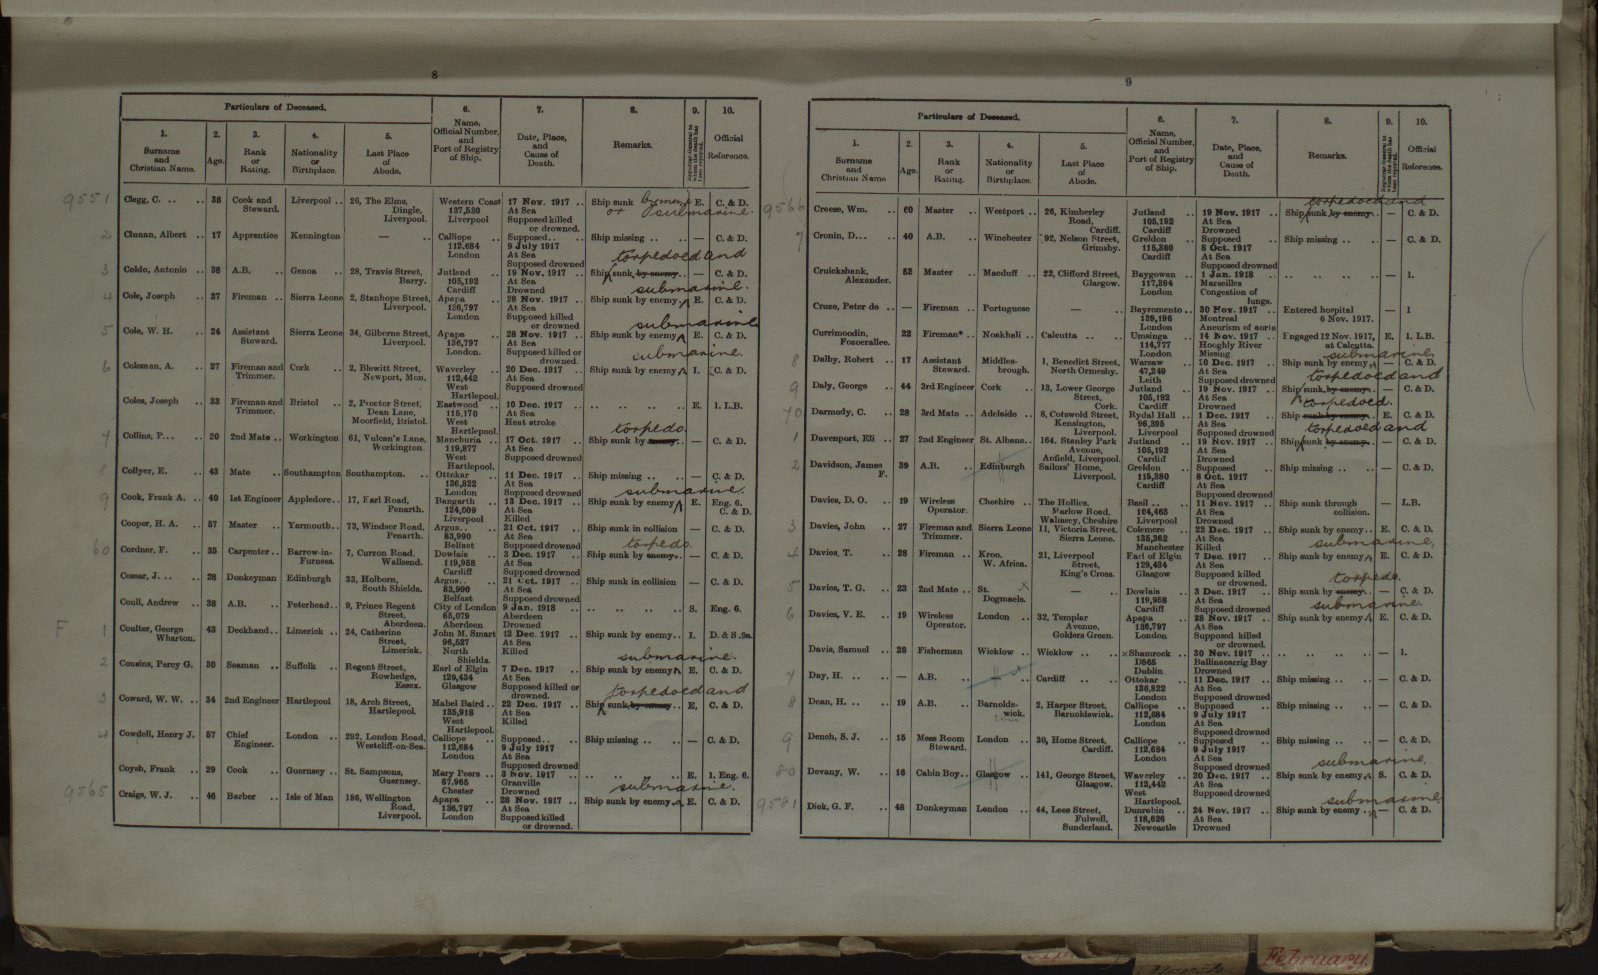 8
Particulars of Deceased.
1. Surname and Christian Name.
2. Age.
3. Rank or Rating.
4. Nationality or Birthplace.
5. Last Place of Abode.
6. Name, Official Number, and Port of Registry of Ship.
7. Date, Place, and Cause of Death.
8. Remarks.
9. Registrar-General to whom the death has been reported.
10. Official Reference.
9551 Clegg, C. .. .. 38 Cook and Steward. Liverpool .. 26, The Elms, Dingle, Liverpool. Western Coast 137,530 Liverpool 17 Nov. 1917 .. At Sea Supposed killed or drowned. Ship sunk by mine or submarine. E. C. & D.
2 Clunan, Albert .. 17 Apprentice Kennington — .. Calliope .. 112,684 London Supposed .. 9 July 1917 At Sea Supposed drowned Ship missing .. .. — C. & D.
3 Coldo, Antonio .. 38 A.B. .. Genoa .. 28, Travis Street, Barry. Jutland .. 105,192 Cardiff 19 Nov. 1917 .. At Sea Drowned Ship torpedoed and sunk by enemy .. — C. & D.
4 Cole, Joseph .. 37 Fireman .. Sierra Leone 2, Stanhope Street, Liverpool. Apapa .. 136,797 London 28 Nov. 1917 .. At Sea Supposed killed or drowned Ship sunk by enemy submarine. E. C. & D.
5 Cole, W. H. .. 24 Assistant Steward. Sierra Leone 34, Gilborne Street, Liverpool. Apapa .. 136,797 London. 28 Nov. 1917 .. At Sea Supposed killed or drowned. Ship sunk by enemy submarine E. C. & D.
6 Coleman, A. .. 27 Fireman and Trimmer. Cork .. 2, Blewitt Street, Newport, Mon. Waverley .. 112,442 West Hartlepool. 20 Dec. 1917 .. At Sea Supposed drowned Ship sunk by enemy submarine. I. C. & D.
Coles, Joseph .. 33 Fireman and Trimmer. Bristol .. 2, Proctor Street, Dean Lane, Moorfield, Bristol. Eastwood .. 115,170 West Hartlepool. 10 Dec. 1917 .. At Sea Heat stroke .. .. .. .. E. 1. L.B.
7 Collins, P... .. 20 2nd Mate .. Workington 61, Vulcan's Lane, Workington. Manchuria .. 119,877 West Hartlepool. 17 Oct. 1917 .. At Sea Supposed drowned Ship sunk by enemy .. torpedo. — C. & D.
8 Collyer, E. .. 43 Mate .. Southampton Southampton. .. Ottokar .. 136,822 London 11 Dec. 1917 .. At Sea Supposed drowned Ship missing .. .. — C. & D.
9 Cook, Frank A. .. 40 1st Engineer Appledore.. 17, Earl Road, Penarth. Bangarth .. 124,009 Liverpool 13 Dec. 1917 .. At Sea Killed Ship sunk by enemy submarine. E. Eng. 6. C. & D.
Cooper, H. A. .. 57 Master .. Yarmouth.. 73, Windsor Road, Penarth. Argus.. .. 83,990 Belfast 21 Oct. 1917 .. At Sea Supposed drowned Ship sunk in collision — C. & D.
60 Cordner, F. .. 35 Carpenter .. Barrow-in-Furness. 7, Curzon Road, Wallsend. Dowlais .. 119,958 Cardiff 3 Dec. 1917 .. At Sea Supposed drowned Ship sunk by enemy.. torpedo. — C. & D.
Cossar, J. .. .. 28 Donkeyman Edinburgh 33, Holborn, South Shields. Argus.. .. 83,990 Belfast 21 Oct. 1917 .. At Sea Supposed drowned Ship sunk in collision — C. & D.
Coull, Andrew .. 38 A.B. .. Peterhead.. 9, Prince Regent Street, Aberdeen. City of London 65,079 Aberdeen 9 Jan. 1918 .. Aberdeen Drowned .. .. .. .. S. Eng. 6.
F 1 Coulter, George Wharton. 43 Deckhand.. Limerick .. 24, Catherine Street, Limerick. John M. Smart 96,527 North Shields. 12 Dec. 1917 .. At Sea Killed Ship sunk by enemy.. I. D. & S .9a.
2 Cousins, Percy G. 30 Seaman .. Suffolk .. Regent Street, Rowhedge, Essex. Earl of Elgin 129,434 Glasgow 7 Dec. 1917 .. At Sea Supposed killed or drowned. Ship sunk by enemy submarine. E. C. & D.
3 Coward, W. W. .. 34 2nd Engineer Hartlepool 18, Arch Street, Hartlepool. Mabel Baird .. 135,918 West Hartlepool. 22 Dec. 1917 .. At Sea Killed Ship torpedoed and sunk by enemy .. E. C. & D.
4 Cowdell, Henry J. 57 Chief Engineer. London .. 292, London Road, Westcliff-on-Sea. Calliope .. 112,684 London Supposed .. 9 July 1917 At Sea Supposed drowned Ship missing .. .. — C. & D.
Coysh, Frank .. 29 Cook .. Guernsey .. St. Sampsons, Guernsey. Mary Peers .. 67,965 Chester 3 Nov. 1917 .. Granville Drowned .. .. .. .. E. 1. Eng. 6.
9565 Craige, W. J. .. 46 Barber .. Isle of Man 186, Wellington Road, Liverpool. Apapa .. 136,797 London 28 Nov. 1917 .. At Sea Supposed killed or drowned. Ship sunk by enemy submarine. E. C. & D.
9
Particulars of Deceased.
1. Surname and Christian Name
2. Age.
3. Rank or Rating.
4. Nationality or Birthplace.
5. Last Place of Abode.
6. Name, Official Number, and Port of Registry of Ship.
7. Date, Place, and Cause of Death.
8. Remarks.
9. Registrar-General to whom the death has been reported.
10. Official Reference.
9566 Croese, Wm. .. 60 Master .. Westport .. 26, Kimberley Road, Cardiff. Jutland .. 105,192 Cardiff 19 Nov. 1917 .. At Sea Drowned Ship torpedoed and sunk by enemy .. — C. & D.
7 Cronin, D... .. 40 A.B. .. Winchester 92, Nelson Street, Grimsby. Greldon .. 115,380 Cardiff Supposed .. 8 Oct. 1917 At Sea Supposed drowned Ship missing .. .. — C. & D.
Cruickshank, Alexander. 52 Master .. Macduff .. 22, Clifford Street, Glasgow. Baygowan .. 117,394 London 1 Jan. 1918 .. Marseilles Congestion of lungs. .. .. .. .. — 1.
Cruze, Peter de .. — Fireman .. Portuguese — .. Bayromento .. 139,196 London 30 Nov. 1917 .. Montreal Aneurism of aorta Entered hospital 6 Nov. 1917. — 1
Currimoodin, Fozoerallee. 22 Fireman* .. Noakhali .. Calcutta .. .. Umsinga .. 114,777 London 14 Nov. 1917 .. Hooghly River Missing Engaged 12 Nov. 1917, at Calcutta. E. 1. L.B.
8 Dalby, Robert .. 17 Assistant Steward. Middlesbrough. 1, Benedict Street, North Ormesby. Warsaw .. 47,249 Leith 20 Dec. 1917 .. At Sea Supposed drowned Ship sunk by enemy submarine. — C. & D.
9 Daly, George .. 44 3rd Engineer Cork .. 13, Lower George Street, Cork. Jutland .. 105,192 Cardiff 19 Nov. 1917 .. At Sea Drowned Ship torpedoed and sunk by enemy .. — C. & D.
70 Darmody, C. .. 28 3rd Mate .. Adelaide .. 8, Cotswold Street, Kensington, Liverpool. Rydal Hall .. 96,395 Liverpool 1 Dec. 1917 .. At Sea Supposed drowned Ship sunk by enemy .. torpedoed. E. C. & D.
1 Davenport, Eli .. 27 2nd Engineer St. Albans.. 164, Stanley Park Avenue, Anfield, Liverpool. Jutland .. 105,192 Cardiff 19 Nov. 1917 .. At Sea Drowned Ship torpedoed and sunk by enemy .. — C. & D.
2 Davidson, James F. 39 A.B. .. Edinburgh Sailors' Home, Liverpool. Greldon .. 115,380 Cardiff Supposed .. 8 Oct. 1917 At Sea Supposed drowned Ship missing .. .. — C. & D.
Davies, D. O. .. 19 Wireless Operator. Cheshire .. The Hollies, Marlow Road, Wallasey, Cheshire Basil .. .. 104,463 Liverpool 11 Nov. 1917 .. At Sea Drowned Ship sunk through collision. — L.B.
3 Davies, John .. 27 Fireman and Trimmer. Sierra Leone 11, Victoria Street, Sierra Leone. Colemere .. 135,362 Manchester 22 Dec. 1917 .. At Sea Killed Ship sunk by enemy .. E. C. & D.
4 Davies, T. .. 28 Fireman .. Kroo, W. Africa. 21, Liverpool Street, King's Cross. Earl of Elgin 129,434 Glasgow 7 Dec. 1917 .. At Sea Supposed killed or drowned. Ship sunk by enemy submarine. E. C. & D.
5 Davies, T. G. .. 23 2nd Mate .. St. Dogmaels. x — .. Dowlais .. 119,958 Cardiff 3 Dec. 1917 .. At Sea Supposed drowned Ship sunk by enemy .. torpedo. — C. & D.
6 Davies, V. E. .. 19 Wireless Operator. London .. 32, Templar Avenue, Golders Green. Apapa .. 136,797 London 28 Nov. 1917 .. At Sea Supposed killed or drowned. Ship sunk by enemy submarine. E. C. & D.
Davis, Samuel .. 28 Fisherman Wicklow .. Wicklow .. .. x Shamrock .. D565 Dublin 30 Nov. 1917 .. Ballinacarrig Bay Drowned .. .. .. .. — 1.
7 Day, H. .. .. — A.B. .. — .. x Cardiff .. .. Ottokar .. 136,822 London 11 Dec. 1917 .. At Sea Supposed drowned Ship missing .. .. — C. & D.
8 Dean, H. .. .. 19 A.B. .. Barnoldswick. 2, Harper Street, Barnoldswick. Calliope .. 112,684 London Supposed .. 9 July 1917 At Sea Supposed drowned Ship missing .. .. — C. & D.
9 Dench, S. J. .. 15 Mess Room Steward. London .. 30, Home Street, Cardiff. Calliope .. 112,684 London Supposed .. 9 July 1917 At Sea Supposed drowned Ship missing .. .. — C. & D.
80 Devany, W. .. 16 Cabin Boy.. Glasgow .. 141, George Street, Glasgow. Waverley .. 112,442 West Hartlepool. 20 Dec. 1917 .. At Sea Supposed drowned Ship sunk by enemy submarine. S. C. & D.
9581 Dick, G. F. .. 48 Donkeyman London .. 44, Lees Street, Fulwell, Sunderland. Dunrobin .. 118,626 Newcastle 24 Nov. 1917 .. At Sea Drowned Ship sunk by enemy .. submarine. — C. & D.
February